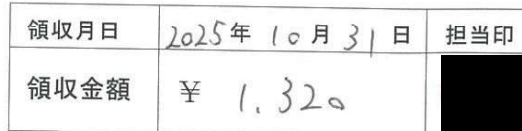 領収月日 2025年 10月 31日 担当印
領収金額 ¥ 1.320